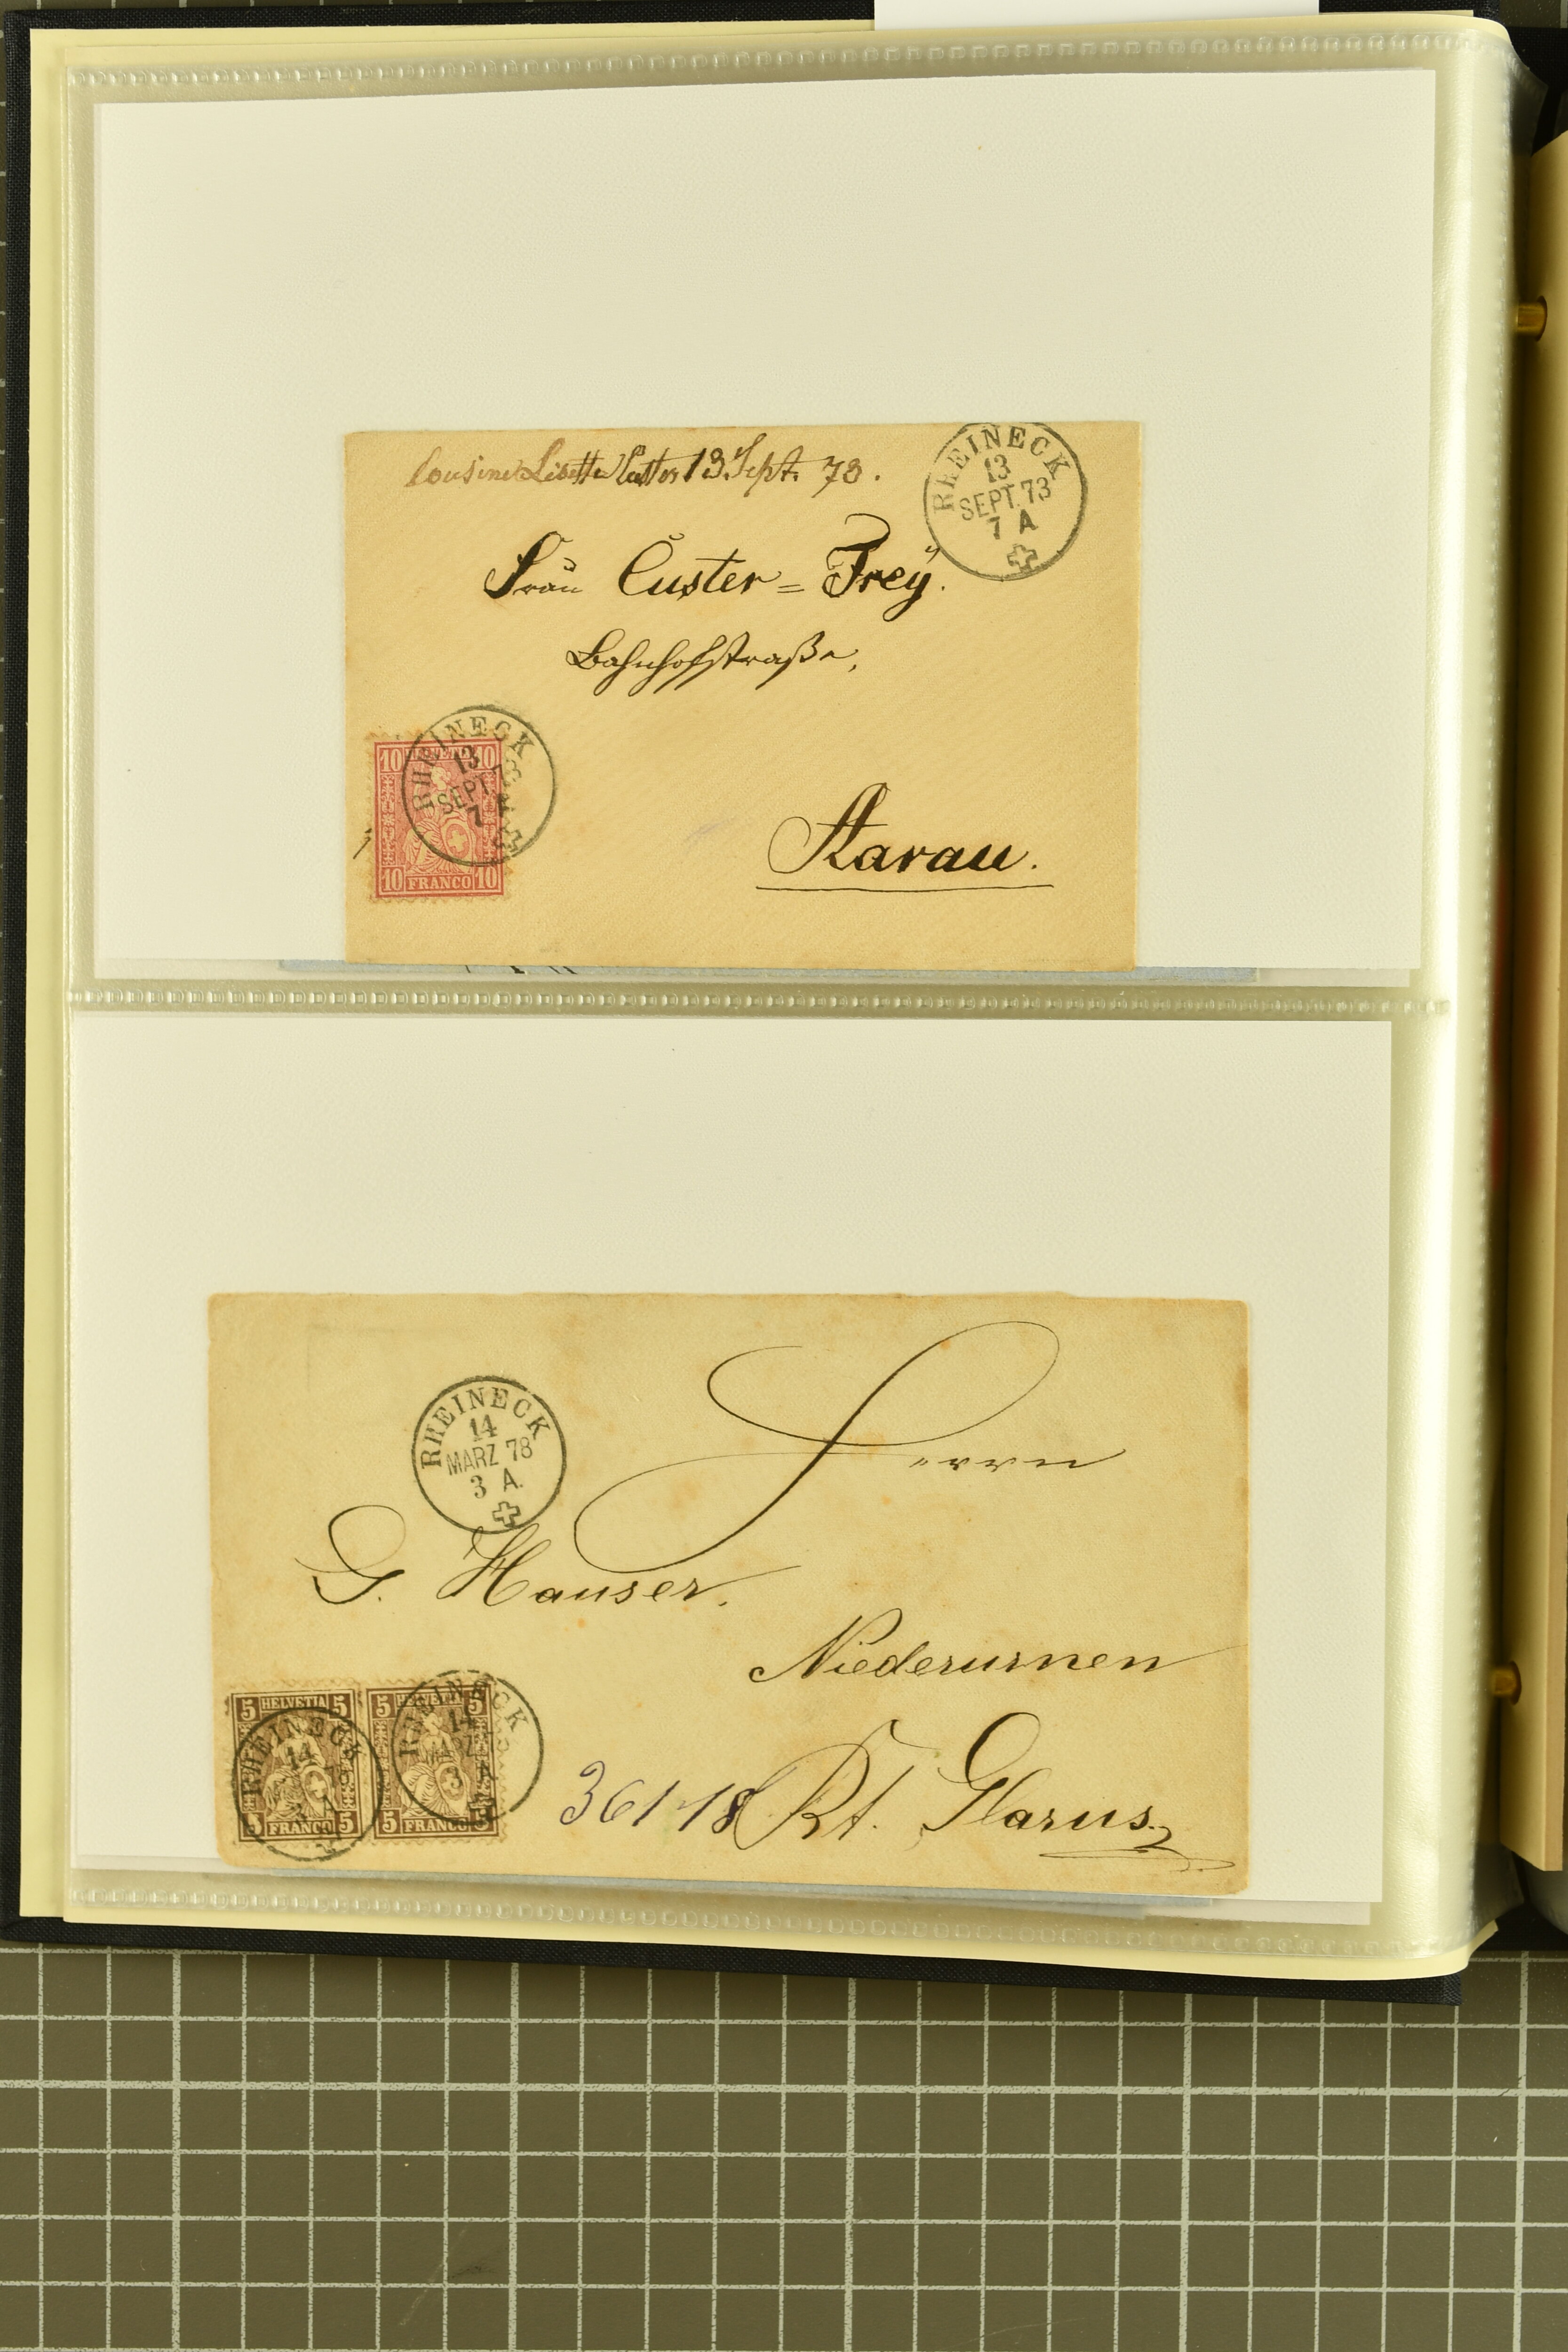 Cousine Lisette Custer 13. Sept. 73.
RHEINECK
13
SEPT. 73
7 A
Frau Custer = Frey.
Bahnhofstraße,
RHEINECK
13
SEPT. 73
7 A
10 HELVETIA 10
10 FRANCO 10
Aarau.
Herrn
RHEINECK
14
MARZ 78
3 A.
G. Hauser.
Niederurnen
5 HELVETIA 5
5 FRANCO 5
5 HELVETIA 5
5 FRANCO 5
RHEINECK
14
RHEINECK
14
MARZ
3 A
Kt. Glarus.